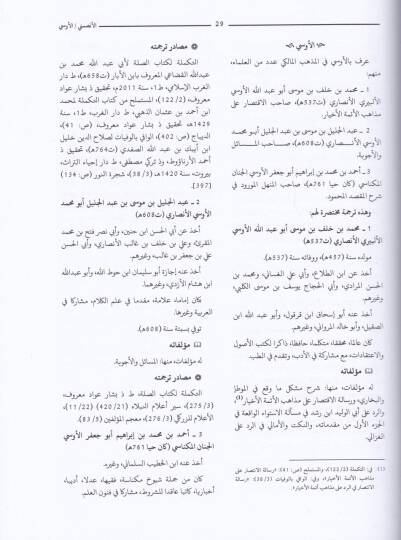 الأقصى / الأوسي
29
الأوسي
عرف بالأوسي في المذهب المالكي عدد من العلماء،
منهم:
1 ـ محمد بن خلف بن موسى أبو عبد الله الأوسي
الألبيري الأنصاري (ت537هـ)، صاحب الاقتصار على
مذاهب الأئمة الأخيار.
2 ـ عبد الجليل بن موسى بن عبد الجليل أبو محمد
الأوسي الأنصاري (ت608هـ)، صاحب المسائل
والأجوبة.
3 ـ أحمد بن محمد بن إبراهيم أبو جعفر الأوسي الجنان
المكناسي (كان حيا 761هـ)، صاحب المنهل المورود في
شرح المقصد المحمود.
وهذه ترجمة مختصرة لهم:
1 ـ محمد بن خلف بن موسى أبو عبد الله الأوسي
الألبيري الأنصاري (ت537هـ)
مولده سنة (457هـ)، ووفاته سنة (537هـ).
أخذ عن ابن الطلاع، وأبي علي الغساني، ومحمد بن
الحسن المرادي، وأبي الحجاج يوسف بن موسى الكلبي،
وغيرهم.
أخذ عنه أبو إسحاق ابن قرقول، وأبو عبد الله ابن
الصقيل، وأبو خالد المرواني، وغيرهم.
كان عالما، محققا، متكلما، حافظا، ذاكرا لكتب الأصول
والاعتقادات، مع مشاركة في الأدب، وتقدم في الطب.
مؤلفاته
له مؤلفات، منها: شرح مشكل ما وقع في الموطإ
والبخاري، ورسالة الاقتصار على مذاهب الأئمة الأخيار(1)،
والرد على أبي الوليد ابن رشد في مسألة الاستواء الواقعة في
الجزء الأول من مقدماته، والنكت والأمالي في الرد على
الغزالي.
(1) في: التكملة (122/2)، والمستملح (ص: 41): «رسالة الاقتصار على
مذاهب الأئمة الأخيار»، وفي: الوافي بالوفيات (38/3):
في الرد على مذاهب أئمة الأخيار.
مصادر ترجمته
التكملة لكتاب الصلة لأبي عبد الله محمد بن
عبدالله القضاعي المعروف بابن الأبار (ت658هـ)، ط دار
الغرب الإسلامي، ط1، سنة 2011م، تحقيق د بشار عواد
معروف، (122/2)، المستملح من كتاب التكملة لمحمد
ابن أحمد بن عثمان الذهبي، ط دار الغرب، ط1، سنة
1429هـ تحقيق د بشار عواد معروف، (ص: 41)،
الديباج (ص: 402)، الوافي بالوفيات لصلاح الدين خليل
ابن أيبك بن عبد الله الصفدي (ت764هـ)، تحقيق د
أحمد الأرناؤوط، ود تركي مصطفى، ط دار إحياء التراث،
بيروت، سنة 1420هـ، (38/3)، شجرة النور (ص: 134
[397]).
2 ـ عبد الجليل بن موسى بن عبد الجليل أبو محمد
الأوسي الأنصاري (ت608هـ)
أخذ عن أبي الحسن ابن حنين، وأبي نصر فتح بن محمد
المقرئ، وعلي بن خلف بن غالب الأنصاري، وأبي الحسن
علي بن جعفر بن غالب، وغيرهم.
أخذ عنه إجازة أبو سليمان ابن حوط الله، وأبو عبدالله
ابن هشام الأزدي، وغيرهما.
كان إماما، علامة، مقدما في علم الكلام، مشاركا في
العربية وغيرها.
توفي بسبتة سنة (608هـ).
مؤلفاته
له مؤلفات، منها: المسائل والأجوبة.
مصادر ترجمته
التكملة لكتاب الصلة، ط د بشار عواد معروف،
(275/3)، سير أعلام النبلاء (420/21)، (11/22)،
الأعلام للزركلي (276/3)، معجم المؤلفين (83/5).
3 ـ أحمد بن محمد بن إبراهيم أبو جعفر الأوسي
الجنان المكناسي (كان حيا 761هـ)
أخذ عنه ابن الخطيب السلماني، وغيره.
كان من جملة شيوخ مكناسة، فقيها، عدلا، أديبا،
أخباريا، كاتبا عاقدا للشروط، مشاركا في فنون العلم.